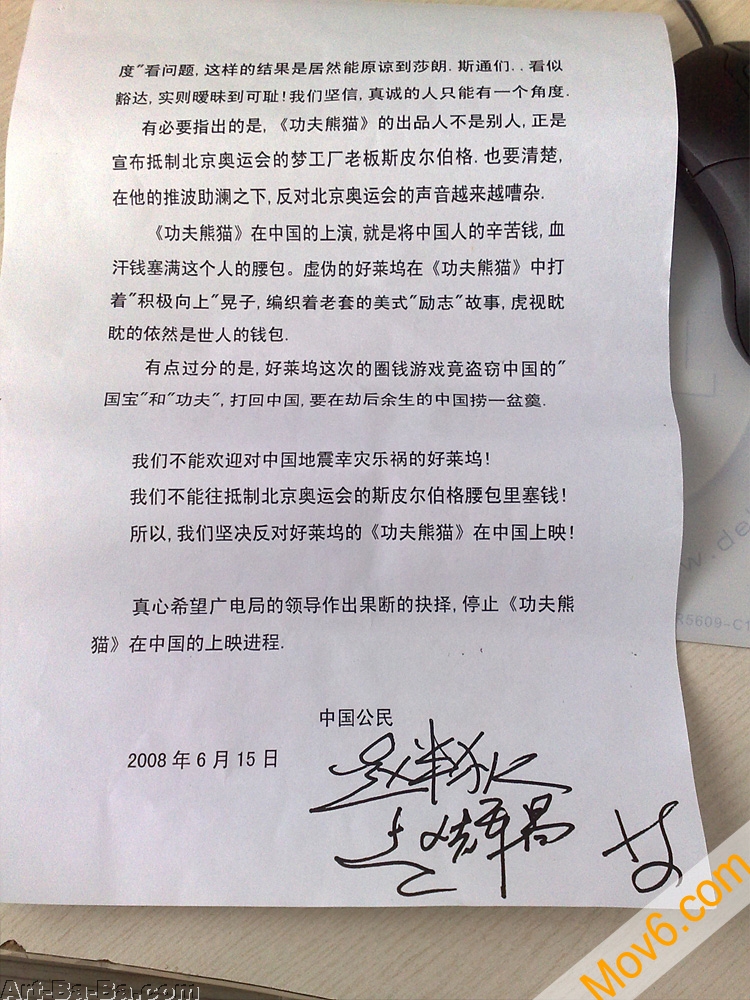 度"看问题, 这样的结果是居然能原谅到莎朗. 斯通们. . 看似
豁达, 实则暧昧到可耻! 我们坚信, 真诚的人只能有一个角度.
有必要指出的是, 《功夫熊猫》的出品人不是别人, 正是
宣布抵制北京奥运会的梦工厂老板斯皮尔伯格. 也要清楚,
在他的推波助澜之下, 反对北京奥运会的声音越来越嘈杂.
《功夫熊猫》在中国的上演, 就是将中国人的辛苦钱, 血
汗钱塞满这个人的腰包。虚伪的好莱坞在《功夫熊猫》中打
着"积极向上"晃子, 编织着老套的美式"励志"故事, 虎视眈
眈的依然是世人的钱包.
有点过分的是, 好莱坞这次的圈钱游戏竟盗窃中国的"
国宝"和"功夫", 打回中国, 要在劫后余生的中国捞一盆羹.
我们不能欢迎对中国地震幸灾乐祸的好莱坞!
我们不能往抵制北京奥运会的斯皮尔伯格腰包里塞钱!
所以, 我们坚决反对好莱坞的《功夫熊猫》在中国上映!
真心希望广电局的领导作出果断的抉择, 停止《功夫熊
猫》在中国的上映进程.
中国公民
2008 年 6 月 15 日
赵半狄
R5609-C1
Mov6.com
Art-Ba-Ba.com